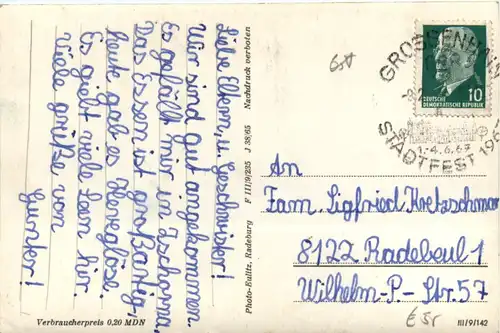 Liebe Eltern, u. Geschwister!
Wir sind gut angekommen.
Es gefällt mir in Zschorna.
Das Essen ist großartig,
heute gab es Heveglöse.
Es gibt viele Seen hier.
Viele grüße von
Gunter!
Verbraucherpreis 0,20 MDN
Photo-Eulitz, Radeburg F III/9/235 J 38/65 Nachdruck verboten
GROSSENHAIN
STADTFEST
1.-4.6.67
10
DEUTSCHE
DEMOKRATISCHE REPUBLIK
An
Fam. Sigfried Kretzschmar
8122 Radebeul 1
Wilhelm-P- Str. 57
III/9/142